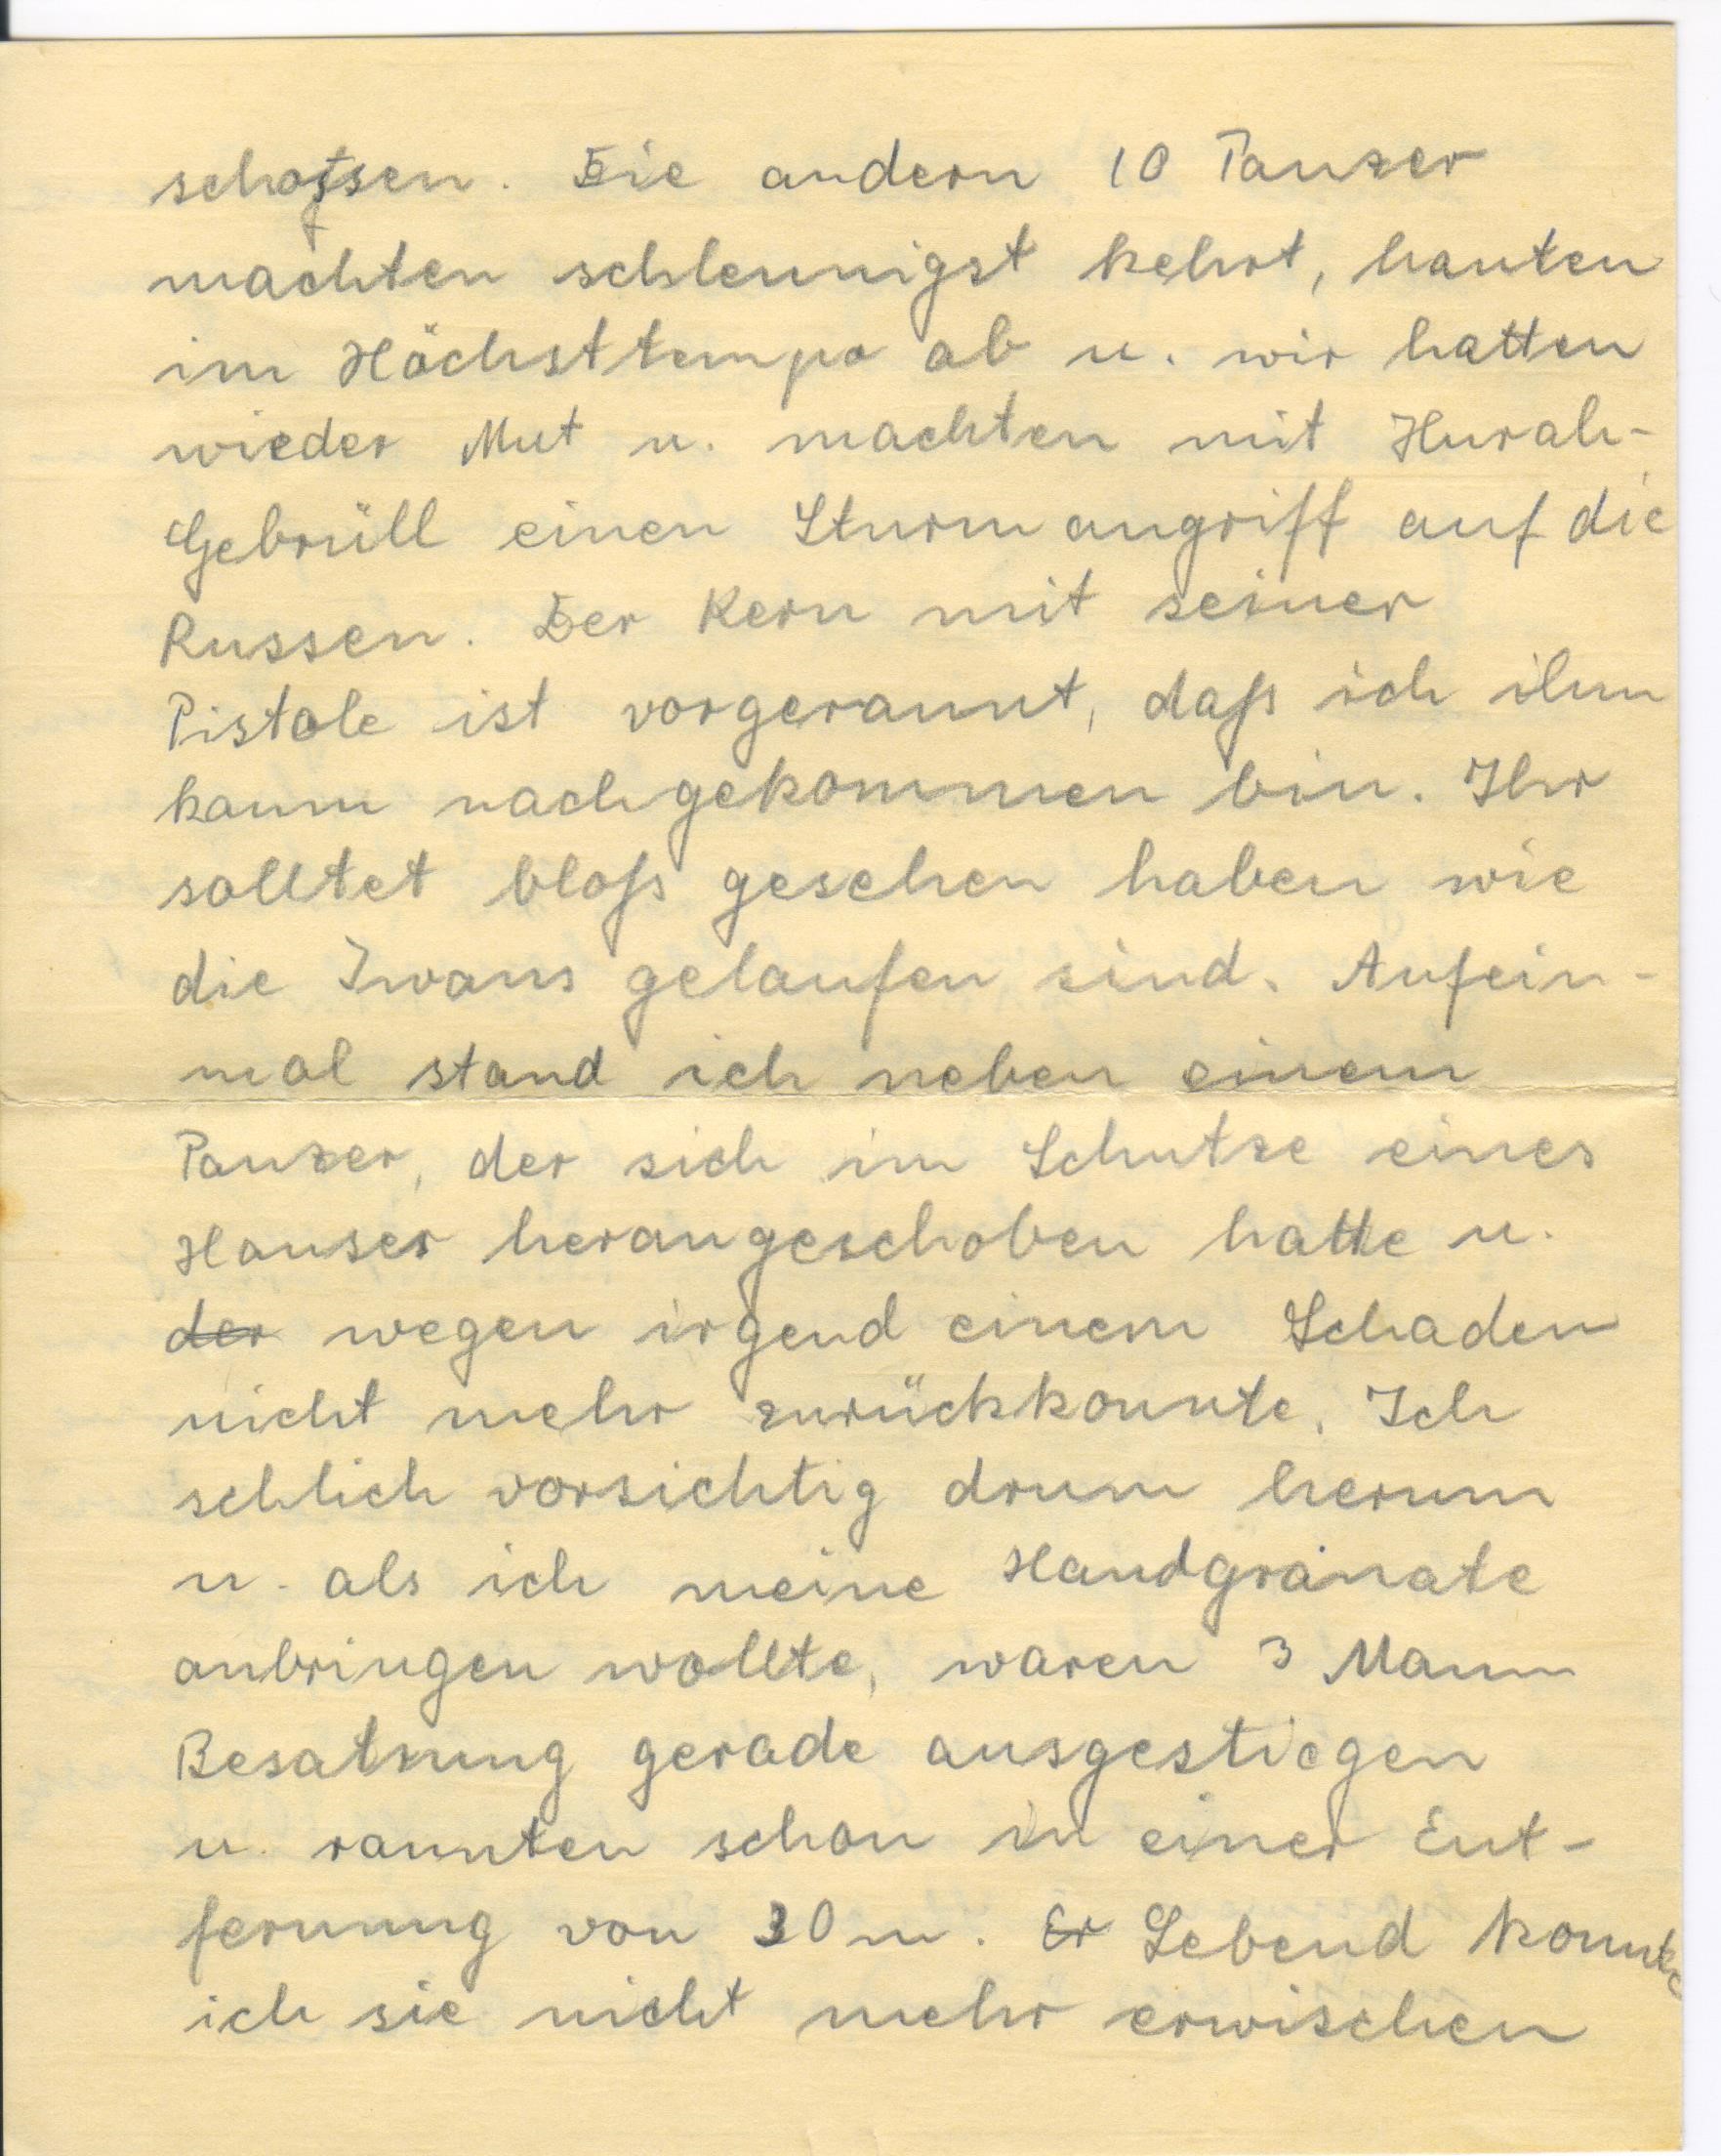 schossen. Die andern 10 Panzer
machten schleunigst kehrt, hauten
im Höchsttempo ab u. wir hatten
wieder Mut u. machten mit Hurah-
Gebrüll einen Sturmangriff auf die
Russen. Der Kern mit seiner
Pistole ist vorgerannt, daß ich ihm
kaum nachgekommen bin. Ihr
solltet bloß gesehen haben wie
die Iwans gelaufen sind. Aufein-
mal stand ich neben einem
Panzer, der sich im Schutze eines
Hauses herangeschoben hatte u.
der wegen irgend einem Schaden
nicht mehr zurückkonnte. Ich
schlich vorsichtig drum herum
u. als ich meine Handgranate
anbringen wollte, waren 3 Mann
Besatzung gerade ausgestiegen
u. rannten schon in einer Ent-
fernung von 30 m. Er Lebend konnte
ich sie nicht mehr erwischen